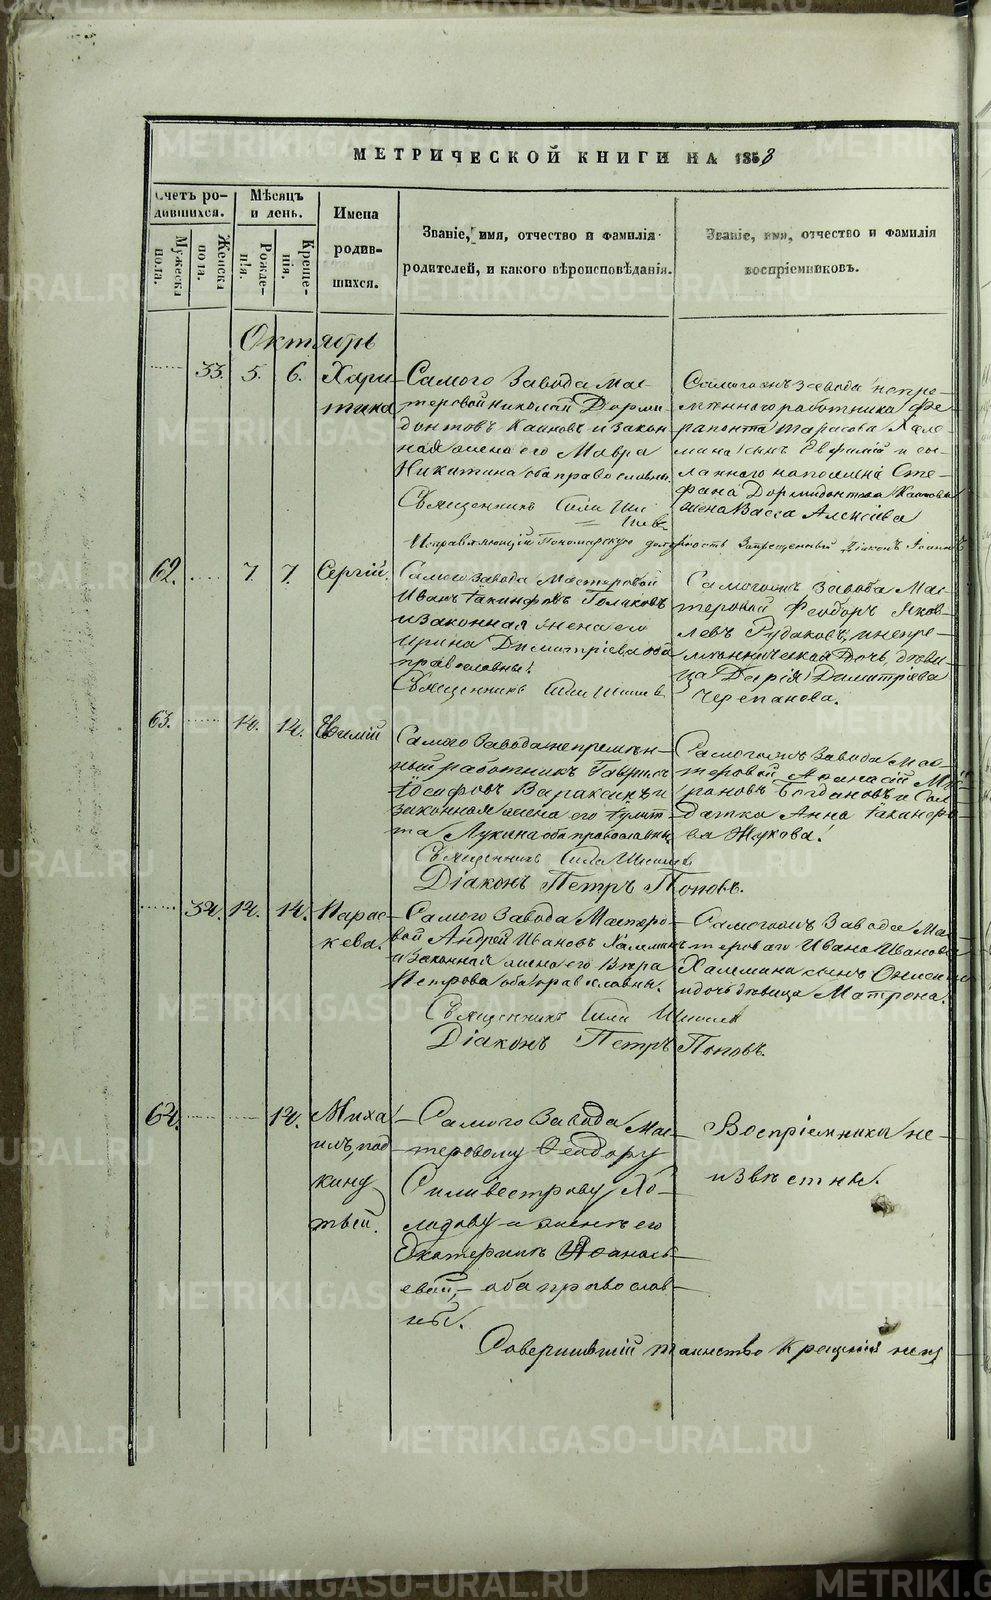 МЕТРИЧЕСКОЙ КНИГИ НА 1853
Счетъ ро-
дившихся.
Мѣсяцъ
и день.
Имена
родив-
шихся.
Званіе, имя, отчество и фамилія
родителей, и какого вѣроисповѣданія.
Званіе, имя, отчество и фамилія
воспріемниковъ.
Мужеска
пола.
Женска
пола.
Рожде-
нія.
Креще-
нія.
Октябрь
33. 5. 6.
Хари-
тина
Самого Завода Мас-
теровой Николай Дорми-
донтовъ Каиновъ и закон-
ная жена его Мавра
Никитина оба православны.
Священникъ Сила
Самогожъ завода непре-
мѣннаго работника Фе-
рапонта Тарасова Хале-
мина сынъ Евфимій и
Сте-
фана Дормидонтова
жена Васса Алексіева
Исправляющій Пономарскую должность Запрещенный Діаконъ Іоаннъ
62. 7. 7. Сергій.
Самого завода Мастеровой
Иванъ Іакинфовъ Поляковъ
и законная жена его
Ирина Димитріева оба
православны.
Священникъ Сила
Самогожъ Завода Мас-
теровой Феодоръ Яков-
левъ Рудаковъ, и непре-
дочь, дѣви-
ца Дарія Димитріева
Черепанова.
63. 12. 12. Евѳимій
Самого Завода непремѣн-
ный работникъ Гавріилъ
Іосафовъ Вараксинъ и
законная жена его Іулит-
та Лукина оба православны,
Священникъ Сила
Діаконъ Петръ Поповъ.
Самогожъ Завода Мас-
теровой Аѳанасій
Богдановъ и Сол-
датка Анна Іакинфо-
ва Жукова.
32. 12. 12.
Парас-
кева.
Самого Завода Мастеро-
вой Андрей Ивановъ Халемин
и Законная жена его Вѣра
Петрова оба православны.
Священникъ Сила
Діаконъ Петръ Поповъ.
Самогожъ Завода Мас-
тероваго Ивана Иванова
Халемина сынъ
и дочь дѣвица Матрона.
62. 12.
Миха-
илъ, под-
кину-
тый.
Самого Завода Мас-
теровому Феодору
Сильвестрову Хо-
лодову и женѣ его
Екатеринѣ Аѳанась-
евой, оба православ-
ны.
Воспріемники не-
извѣстны.
Совершившій таинство Крещенія
METRIKI.GASO-URAL.RU